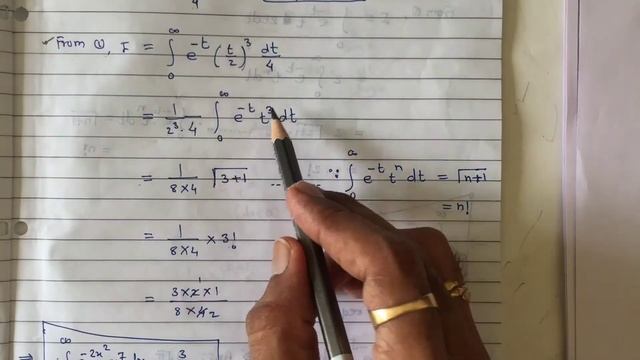 4
✓ From ①, I = ∫₀^∞ e^{-t} (t/2)^3 dt/4
= 1/(2^3·4) ∫₀^∞ e^{-t} t^3 dt
= 1/(8×4) Γ3+1 ... ∵ ∫₀^∞ e^{-t} t^n dt = Γn+1
= n!
= 1/(8×4) × 3!
= (3×2×1)/(8×4) 1 2
⇒ ∫^∞ -2x^2 7 3